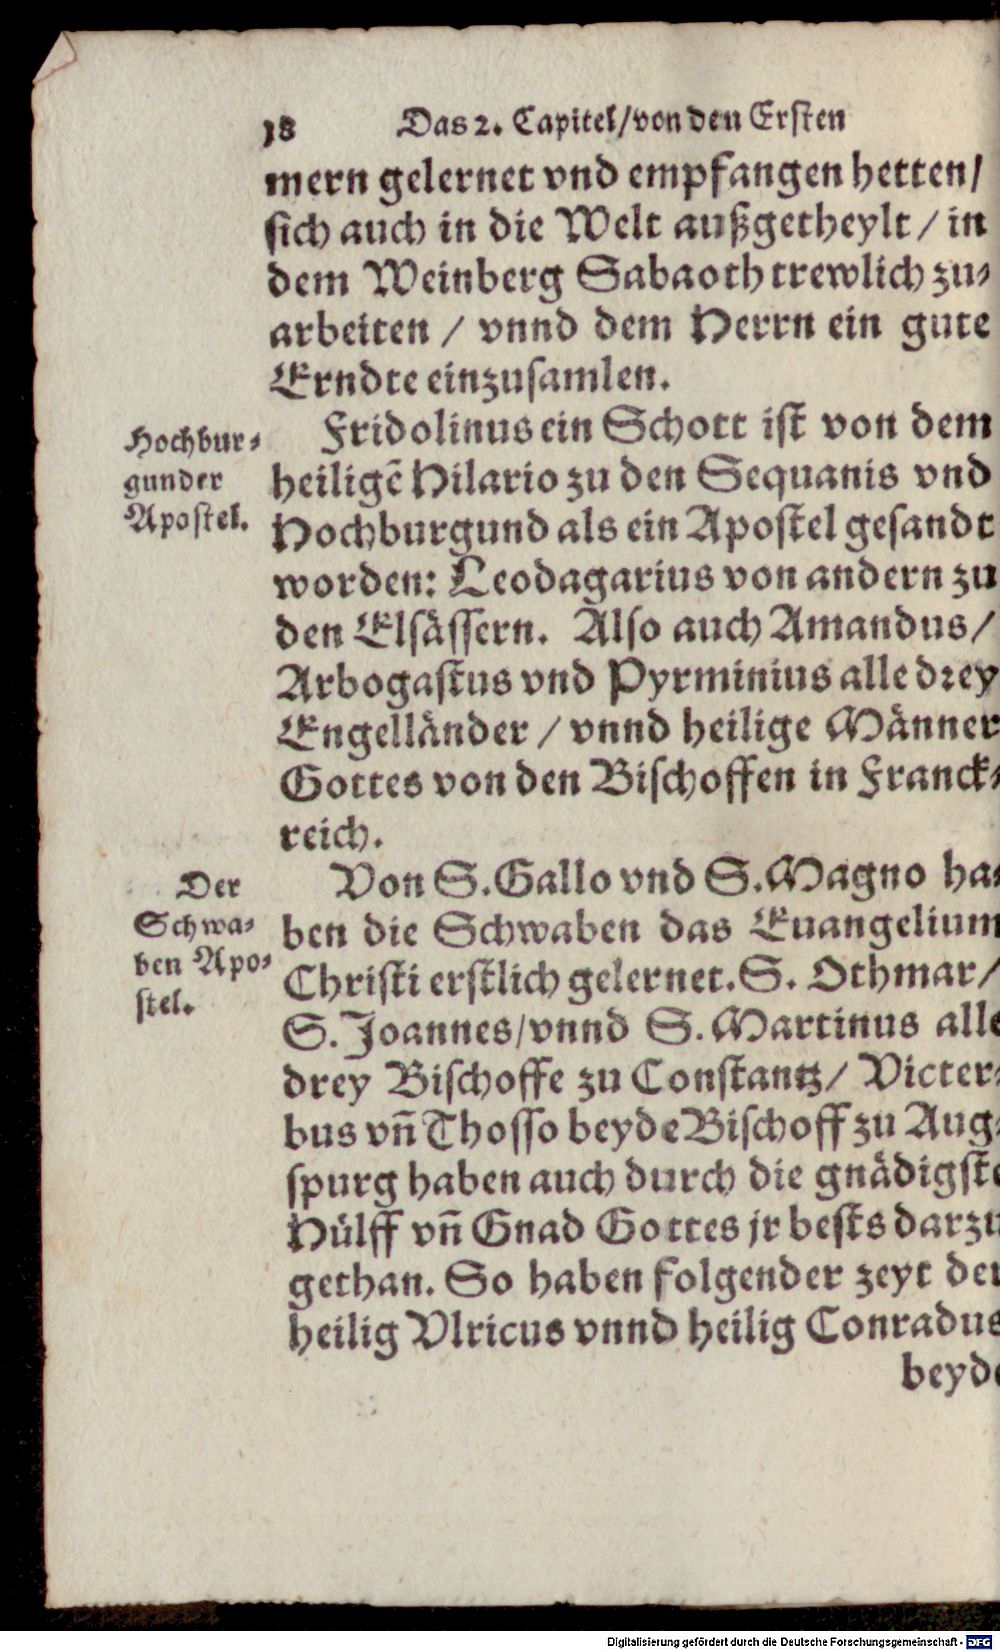 18 Das 2. Capitel/von den Ersten
mern gelernet vnd empfangen hetten/
sich auch in die Welt außgetheylt / in
dem Weinberg Sabaoth trewlich zu-
arbeiten / vnnd dem Herrn ein gute
Erndte einzusamlen.
Hochbur-
gunder
Apostel.
Fridolinus ein Schott ist von dem
heiligē Hilario zu den Sequanis vnd
Hochburgund als ein Apostel gesandt
worden: Leodagarius von andern zu
den Elsässern. Also auch Amandus/
Arbogastus vnd Pyrminius alle drey
Engelländer / vnnd heilige Männer
Gottes von den Bischoffen in Franck-
reich.
Der
Schwa-
ben Apo-
stel.
Von S. Gallo vnd S. Magno ha-
ben die Schwaben das Euangelium
Christi erstlich gelernet. S. Othmar/
S. Joannes/vnnd S. Martinus alle
drey Bischoffe zu Constantz/ Victer-
bus vñ Thosso beyde Bischoff zu Aug-
spurg haben auch durch die gnädigste
Hülff vñ Gnad Gottes jr bests darzu
gethan. So haben folgender zeyt der
heilig Vlricus vnnd heilig Conradus
beyde
Digitalisierung gefördert durch die Deutsche Forschungsgemeinschaft - DFG